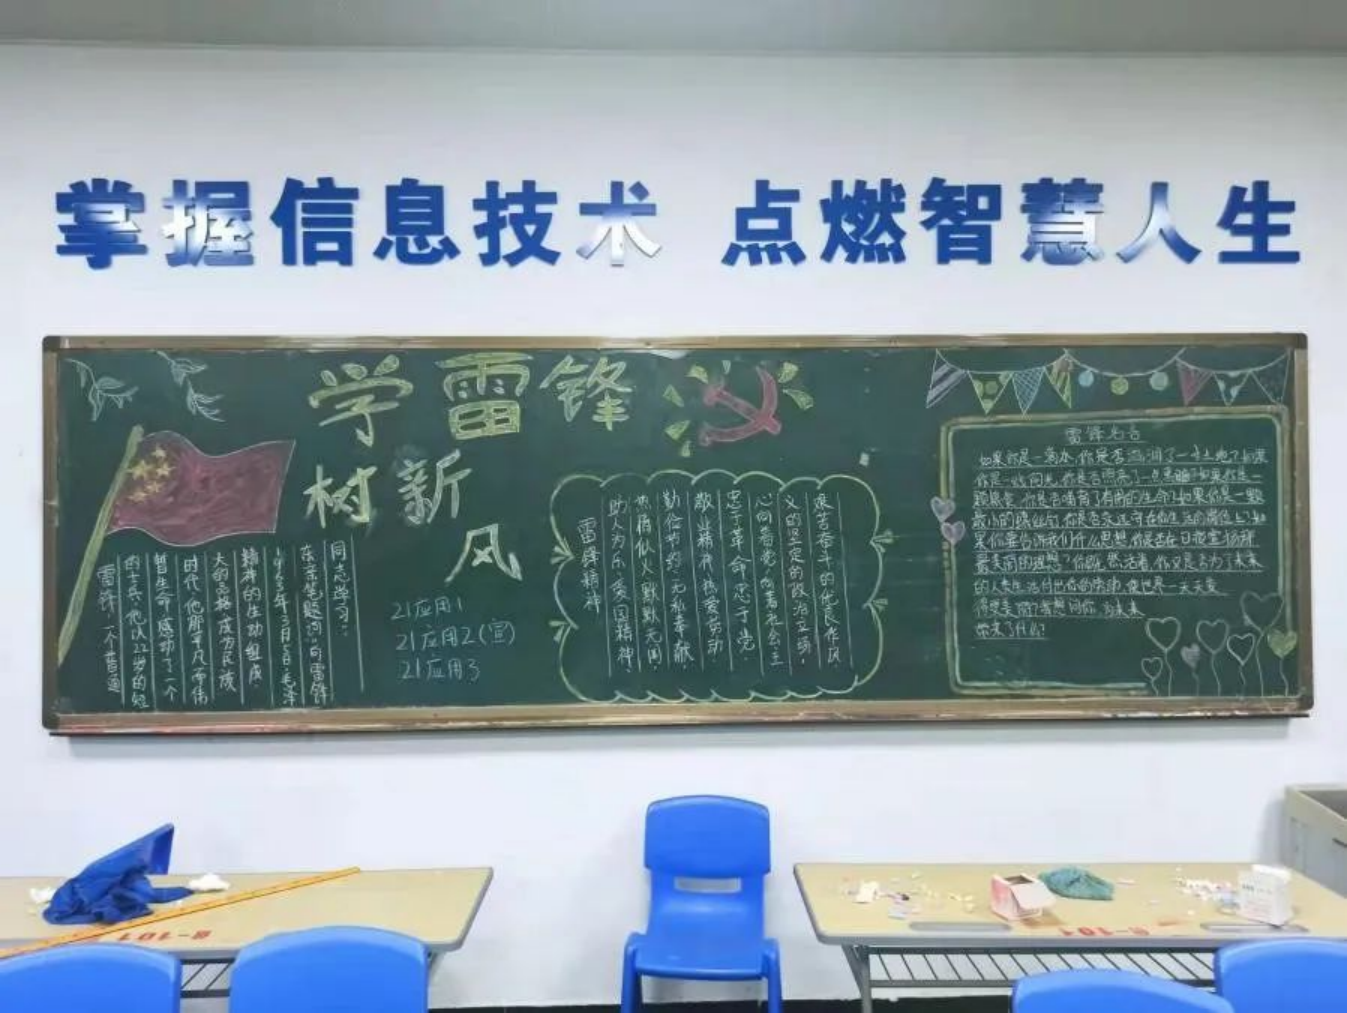 掌握信息技术 点燃智慧人生
学雷锋
树新
风
雷锋,一个普通
的士兵,他以22岁的短
暂生命感动了一个
时代,他那平凡而伟
大的品格,成为民族
精神的生动组成.
1963年3月5日毛泽
东亲笔题词:向雷锋
同志学习.
21应用1
21应用2(宣)
21应用3
雷锋精神
助人为乐,爱国精神,
热情似火,默默无闻,
勤俭节约,无私奉献
敬业精神,热爱劳动,
忠于革命,忠于党.
心向着党,向着社会主
义的坚定的政治立场,
艰苦奋斗的优良作风
雷锋名言
如果你是一滴水,你是否滋润了一寸土地?如果
你是一线阳光,你是否照亮了一点黑暗?如果你是一
颗粮食,你是否哺育了有用的生命?如果你是一颗
最小的螺丝钉,你是否永远守在你生活的岗位上?如
果你要告诉我们什么思想,你是否在日夜宣扬那
最美丽的理想?你既然活着,你又是否为了未来
的人类生活付出你的劳动,使世界一天天变
得更美丽?我想问你,为未来
带来了什么?